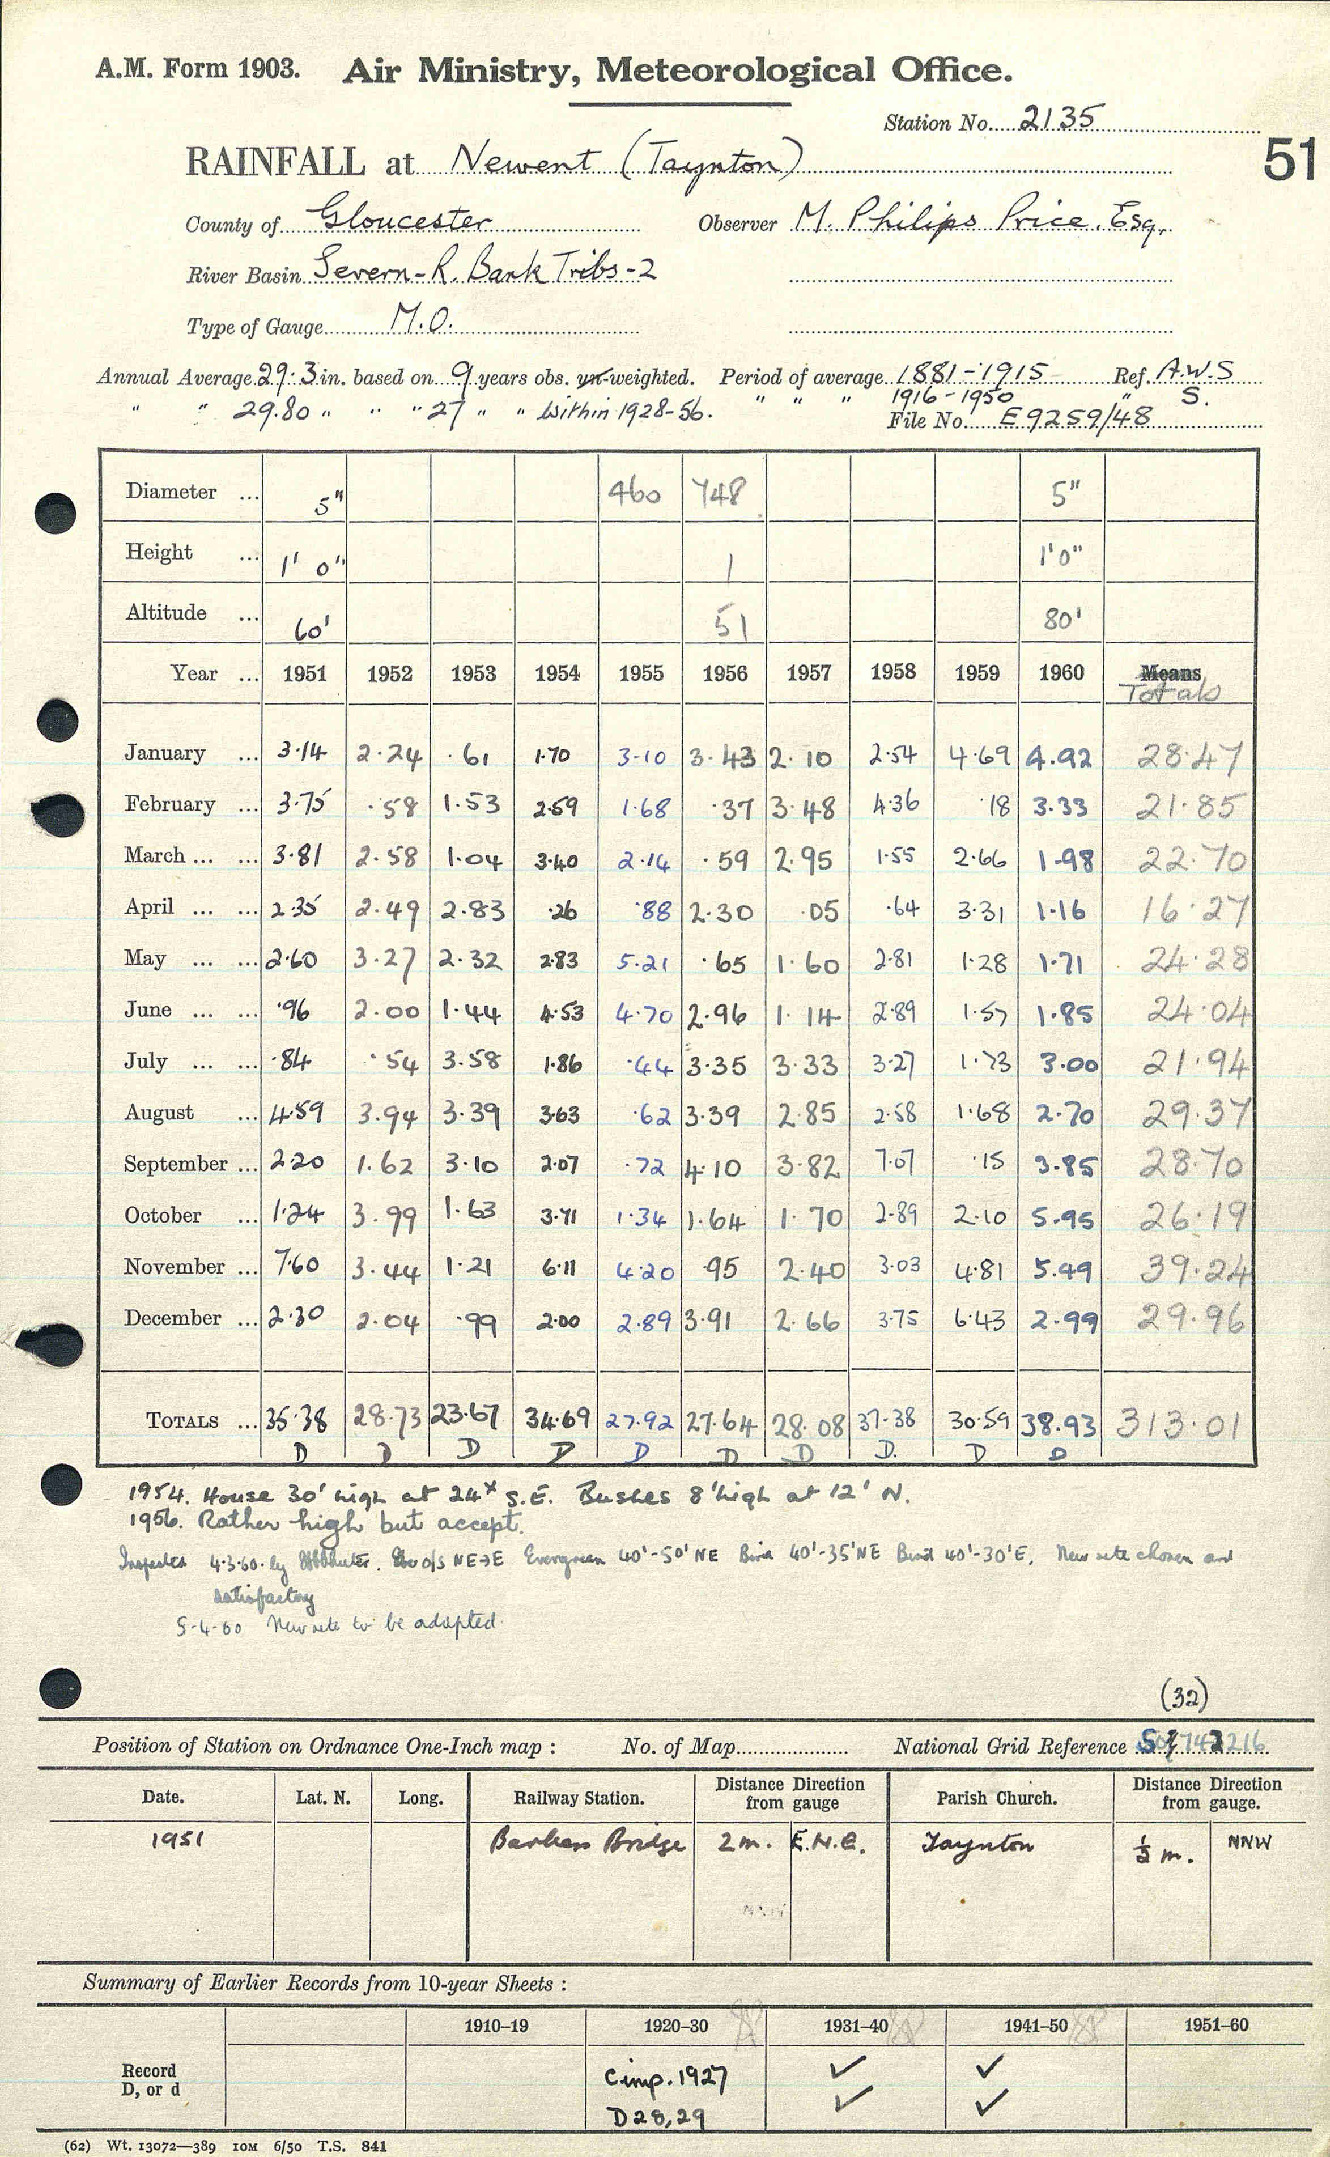 A.M. Form 1903. Air Ministry, Meteorological Office.
Station No. 2135
51
RAINFALL at Newent (Taynton)
County of Gloucester Observer M. Philips Price. Esq.
River Basin Severn-R. Bank Tribs-2
Type of Gauge M.O.
Annual Average 29.3 in. based on 9 years obs. un-weighted. Period of average 1881-1915 Ref. A.W.S
" " 29.80 " " " 27 " " Within 1928-56. " " " 1916-1950 " S.
File No. E9259/48
Diameter ... 5" 460 748 5"
Height ... 1' 0" 1 1'0"
Altitude ... 60' 51 80'
Year ... 1951 1952 1953 1954 1955 1956 1957 1958 1959 1960 Means
Totals
January ... 3.14 2.24 .61 1.70 3.10 3.43 2.10 2.54 4.69 4.92 28.47
February ... 3.75 .58 1.53 2.59 1.68 .37 3.48 4.36 .18 3.33 21.85
March ... ... 3.81 2.58 1.04 3.40 2.14 .59 2.95 1.55 2.66 1.98 22.70
April ... ... 2.35 2.49 2.83 .26 .88 2.30 .05 .64 3.31 1.16 16.27
May ... ... 2.60 3.27 2.32 2.83 5.21 .65 1.60 2.81 1.28 1.71 24.28
June ... ... .96 2.00 1.44 4.53 4.70 2.96 1.14 2.89 1.57 1.85 24.04
July ... ... .84 .54 3.58 1.86 .44 3.35 3.33 3.27 1.73 3.00 21.94
August ... 4.59 3.94 3.39 3.63 .62 3.39 2.85 2.58 1.68 2.70 29.37
September ... 2.20 1.62 3.10 2.07 .72 4.10 3.82 7.07 .15 3.85 28.70
October ... 1.24 3.99 1.63 3.71 1.34 1.64 1.70 2.89 2.10 5.95 26.19
November ... 7.60 3.44 1.21 6.11 4.20 .95 2.40 3.03 4.81 5.49 39.24
December ... 2.30 2.04 .99 2.00 2.89 3.91 2.66 3.75 6.43 2.99 29.96
TOTALS ... 35.38 28.73 23.67 34.69 27.92 27.64 28.08 37.38 30.59 38.93 313.01
D D D D D D D D. D D
1954. House 30' high at 24x S.E. Bushes 8' high at 12' N.
1956. Rather high but accept.
Inspected 4.3.60. by o/s NE→E Evergreen 40'-50' NE 40'-35' NE 40'-30' E. New site chosen and
satisfactory
5-4-60 New site to be adopted.
(32)
Position of Station on Ordnance One-Inch map : No. of Map National Grid Reference
Date. Lat. N. Long. Railway Station. Distance Direction from gauge Parish Church. Distance Direction from gauge.
1951 Barbers Bridge 2 m. E.N.E. Taynton ½ m. NNW
Summary of Earlier Records from 10-year Sheets :
1910-19 1920-30 1931-40 1941-50 1951-60
Record Cimp. 1927 ✓ ✓
D, or d D 28,29 ✓ ✓
(62) Wt. 13072—389 10M 6/50 T.S. 841